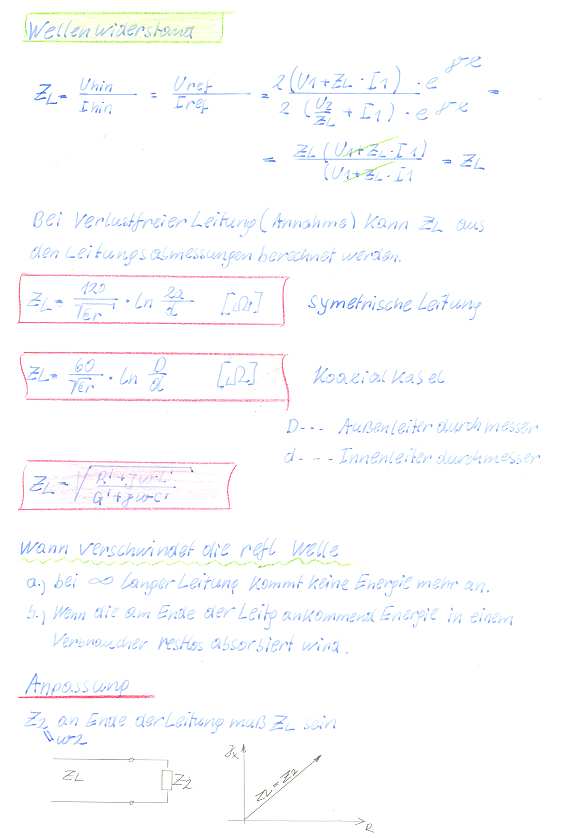 Wellenwiderstand
ZL = Uhin/Ihin = Uref/Iref = 2(U1+ZL·I1)·e^γx / 2(U2/ZL+I1)·e^γx =
= ZL(U1+ZL·I1) / (U1+ZL·I1 = ZL
Bei Verlustfreier Leitung (Annahme) kann ZL aus
den Leitungsabmessungen berechnet werden.
ZL = 120/√εr · ln 2a/d [Ω] Symetrische Leitung
ZL = 60/√εr · ln D/d [Ω] Koaxial Kabel
D--- Außenleiterdurchmesser
d--- Innenleiterdurchmesser
ZL = √R'+jωL'/G'+jωC'
Wann verschwindet die refl Welle
a.) bei ∞ langer Leitung kommt keine Energie mehr an.
b.) Wenn die am Ende der Leitg ankommend Energie in einem
Verbraucher restlos absorbiert wird.
Anpassung
Z2 an Ende der Leitung muß ZL sein
ZL Z2
jx Z2=Z2 R